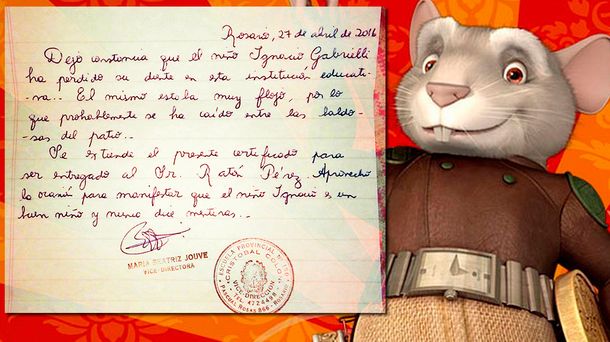 Rosario, 27 de abril de 2016
Dejo constancia que el niño Ignacio Gabrielli
ha perdido su diente en esta institución educati-
va.. El mismo estaba muy flojo, por lo
que probablemente se ha caído entre las baldo-
sas del patio..
Se extiende el presente certificado para
ser entregado al Sr. Ratón Pérez. Aprovecho
la ocasión para manifestar que el niño Ignacio es un
buen niño y nunca dice mentiras..
MARIA BEATRIZ JOUVE
VICE-DIRECTORA
ESCUELA PROVINCIAL
CRISTOBAL COLON
VICE DIRECCION
PASCUAL ROSAS 966 - ROSARIO